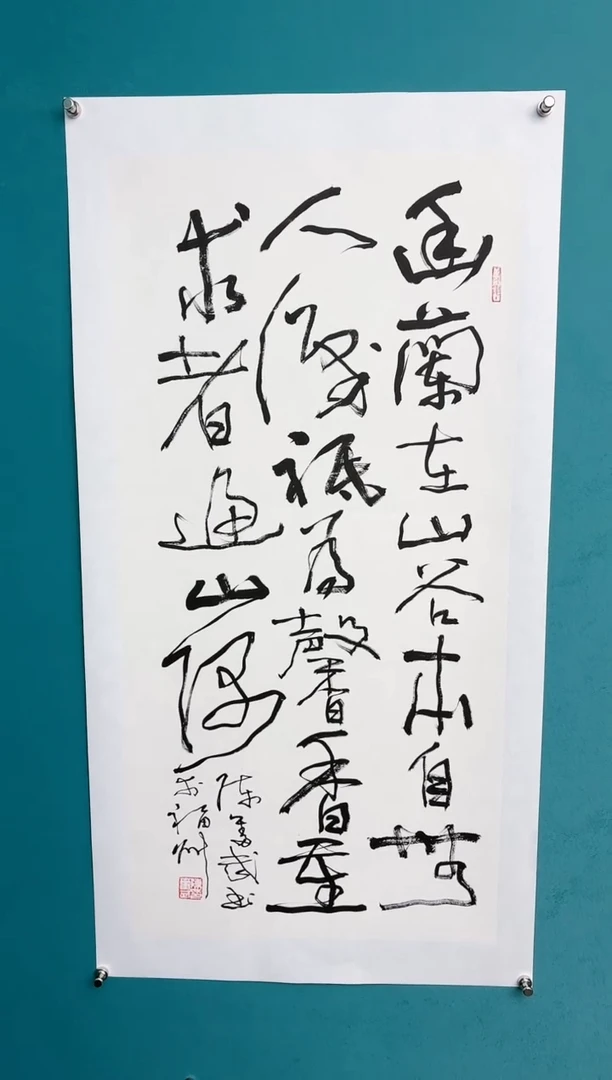 幽蘭在山谷本自無
人識祗為馨香重
求者遍山隅
陈武书
於福州